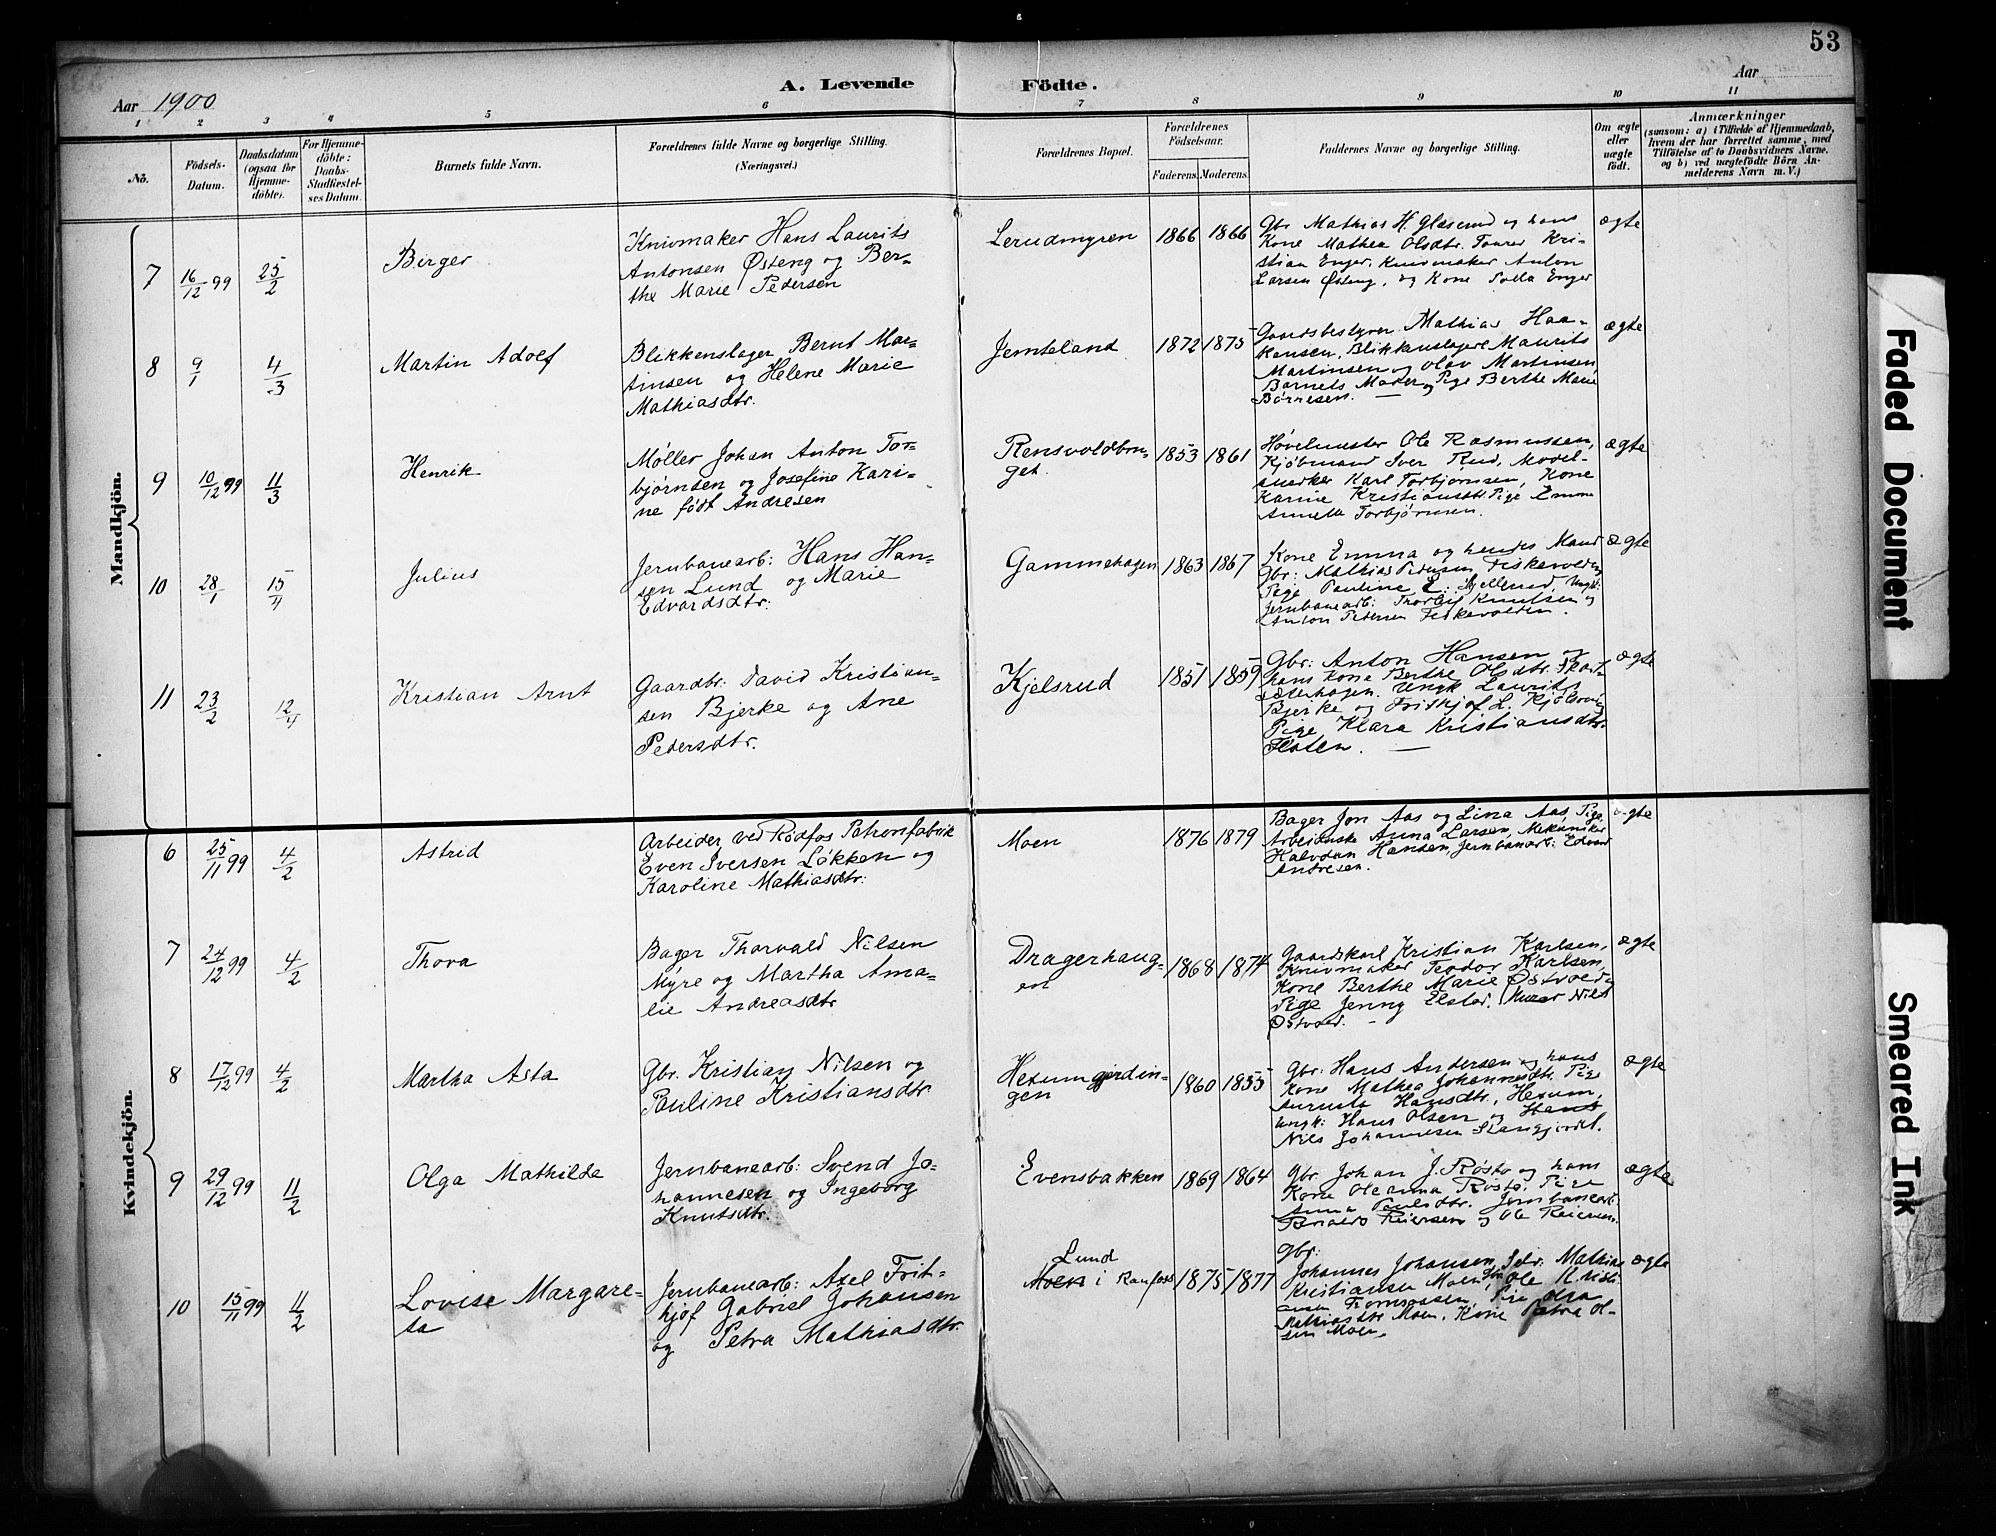 53
A. Levende Födte.
Aar 1900
Aar
1 2 3 4 5 6 7 8 9 10 11
No.
Födsels-
Datum.
Daabsdatum
(ogsaa for
Hjemme-
döbte).
For Hjemme-
döbte:
Daabs-
Stadfæstel-
ses Datum.
Barnets fulde Navn.
Forældrenes fulde Navne og borgerlige Stilling.
(Næringsvei.)
Forældrenes Bopæl.
Forældrenes
Födselsaar.
Faderens. Moderens.
Faddernes Navne og borgerlige Stilling.
Om ægte
eller
uægte
födt.
Anmærkninger
(saasom: a) i Tilfælde af Hjemmedaab,
hvem der har forrettet samme, med
Tilföielse af to Daabsvidners Navne.
og b) ved uægtefödte Börn An-
melderens Navn m. V.)
Mandkjön.
7
16/12 99
25/2
Birger
Knivmaker Hans Laurits
Antonsen Østeng og Ber-
the Marie Pedersen
Lerudmyren
1866
1866
Gbr Mathias H. Glæserud og hans
Kone Mathea Olsdtr. Kri-
stian Enger. Knivmaker Anton
Larsen Østeng, og Kone Enger
ægte
8
9/1
4/3
Martin Adolf
Blikkenslager Bernt Mar-
tinsen og Helene Marie
Mathiasdtr.
Jemteland
1872
1875
Gaardsbestyrer Mathias Haa-
kensen, Blikkenslagere Maurits
Martinsen og Olav Martinsen,
Barnets Moder og Pige Berthe Marie
Børresen. —
ægte
9
10/12 99
11/3
Henrik
Møller Johan Anton Tor-
bjørnsen og Josefine Kari-
ne født Andresen
Rensvoldbon-
get.
1853
1861
Høvelmester Ole Rasmussen,
Kjøbmand Iver Rud, Model-
snerker Karl Torbjørnsen, Kone
Karine Kristiansdtr. Pige Emma
Annette Torbjørnsen.
ægte
10
28/1
15/4
Julius
Jernbanearb: Hans Han-
sen Lund og Marie
Edvardsdtr:
Gammehagen
1863
1867
Kone Emma og hendes Mand
Gbr: Mathias Pedersen Fiskevolden
Pige Pauline E. Ungk:
Jernbanearb: Knutsen og
Anton Pedersen Fiskevolden.
ægte
11
23/2
12/4
Kristian Arnt
Gaardbr: David Kristian-
sen Bjerke og Ane
Pedersdtr.
Kjelsrud
1851
1859
Gbr: Anton Hansen og
hans Kone Berthe Olsdtr.
Ungk Laurits
Bjerke og Fritkjof L.
Pige Klara Kristiansdtr.
Floten. —
ægte
Kvindekjön.
6
25/11 99
4/2
Astrid
Arbeider ved Rødfos Patronfabrik
Even Iversen Løkken og
Karoline Mathiasdtr:
Moen
1876
1879
Bager Jon Aas og Lina Aas, Pige
Anna Larsen, Mekaniker
Halvdan Hansen, Jernbanearb: Edvard
Andresen.
ægte
7
24/12 99
4/2
Thora
Bager Thorvald Nilsen
Myre og Martha Ama-
lie Andreasdtr
Dragerhaug-
en
1868
1874
Gaardskarl Kristian Karlsen,
Knivmaker Teodor Karlsen,
Kone Berthe Marie Østvold,
Pige Jenny Elstad. Murer Nils
Østvold. —
ægte
8
17/12 99
4/2
Martha Asta
Gbr. Kristian Nilsen og
Pauline Kristiansdtr.
Hexumgjerdin-
gen
1860
1855
Gbr: Hans Andersen og hans
Kone Mathea Johannesdtr. Pige
Hansdtr., Hexum,
Ungk: Hans Olsen og Hans
Nils Johannesen Stangjordet.
ægte
9
29/12 99
11/2
Olga Mathilde
Jernbanearb: Svend Jo-
hannesen og Ingeborg
Knutsdtr.
Evensbakken
1869
1864
Gbr Johan J. Røstø og hans
Kone Oleanna Røstø. Pige
Anna Paulsdtr. Jernbanearb.
Reiersen og Ole Reiersen.
ægte
10
15/11 99
11/2
Lovise Margare-
ta
Jernbanearb: Axel Frit-
hjof Gabriel Johansen
og Petra Mathiasdtr.
Lund
Moen i Raufoss
1875
1877
Gbr:
Johannes Johansen, Selv: Mathias
Kristiansen Moen, Ole Kristi-
ansen Pige Olga
Mathiasdtr Moen. Kone Petra Ol-
sen Moen.
ægte
Faded Document
Smeared Ink